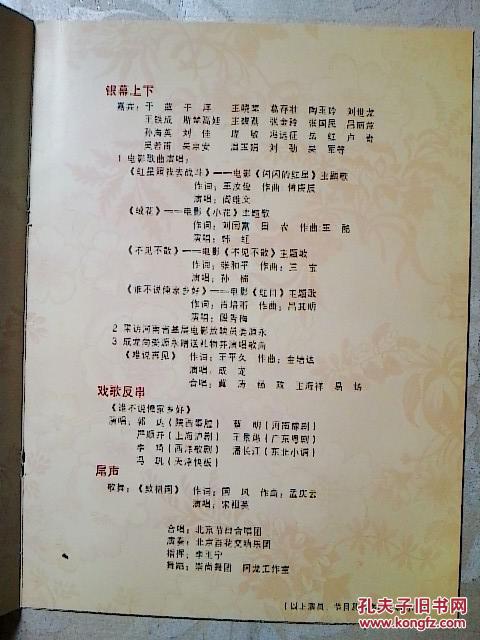 银幕上下
嘉宾：于 蓝 于 洋 王晓棠 葛存壮 陶玉玲 刘世龙
王铁成 斯琴高娃 王馥荔 张金玲 张国民 吕丽萍
孙海英 刘 佳 陈 敏 冯远征 岳 红 卢 奇
吴若甫 吴京安 温玉娟 刘 劲 吴 军等
1 电影歌曲演唱：
《红星照我去战斗》——电影《闪闪的红星》主题歌
作词：王汝俊 作曲 傅庚辰
演唱：阎维文
《绒花》——电影《小花》主题歌
作词：刘国富 田 农 作曲：王 酩
演唱：韩 红
《不见不散》——电影《不见不散》主题歌
作词：张和平 作曲：三 宝
演唱：孙 楠
《谁不说俺家乡好》——电影《红日》主题歌
作词：肖培珩 作曲：吕其明
演唱：殷秀梅
2 采访河南省基层电影放映员娄源永
3 成龙向娄源永赠送礼物并演唱歌曲
《难说再见》 作词：王平久 作曲：金培达
演唱：成 龙
合唱：黄 涛 杨 政 王海祥 易 扬
戏歌反串
《谁不说俺家乡好》
演唱：郭 达（陕西秦腔） 蔡 明（河南豫剧）
严顺开（上海沪剧） 王景愚（广东粤剧）
李 琦（西洋歌剧） 潘长江（东北小调）
冯 巩（天津快板）
尾声
歌舞：《致祖国》 作词：国 风 作曲：孟庆云
演唱：宋祖英
合唱：北京节日合唱团
演奏：北京百花交响乐团
指挥：李玉宁
舞蹈：崇尚舞团 阿龙工作室
（以上演员、节目
孔夫子旧书网
www.kongfz.com